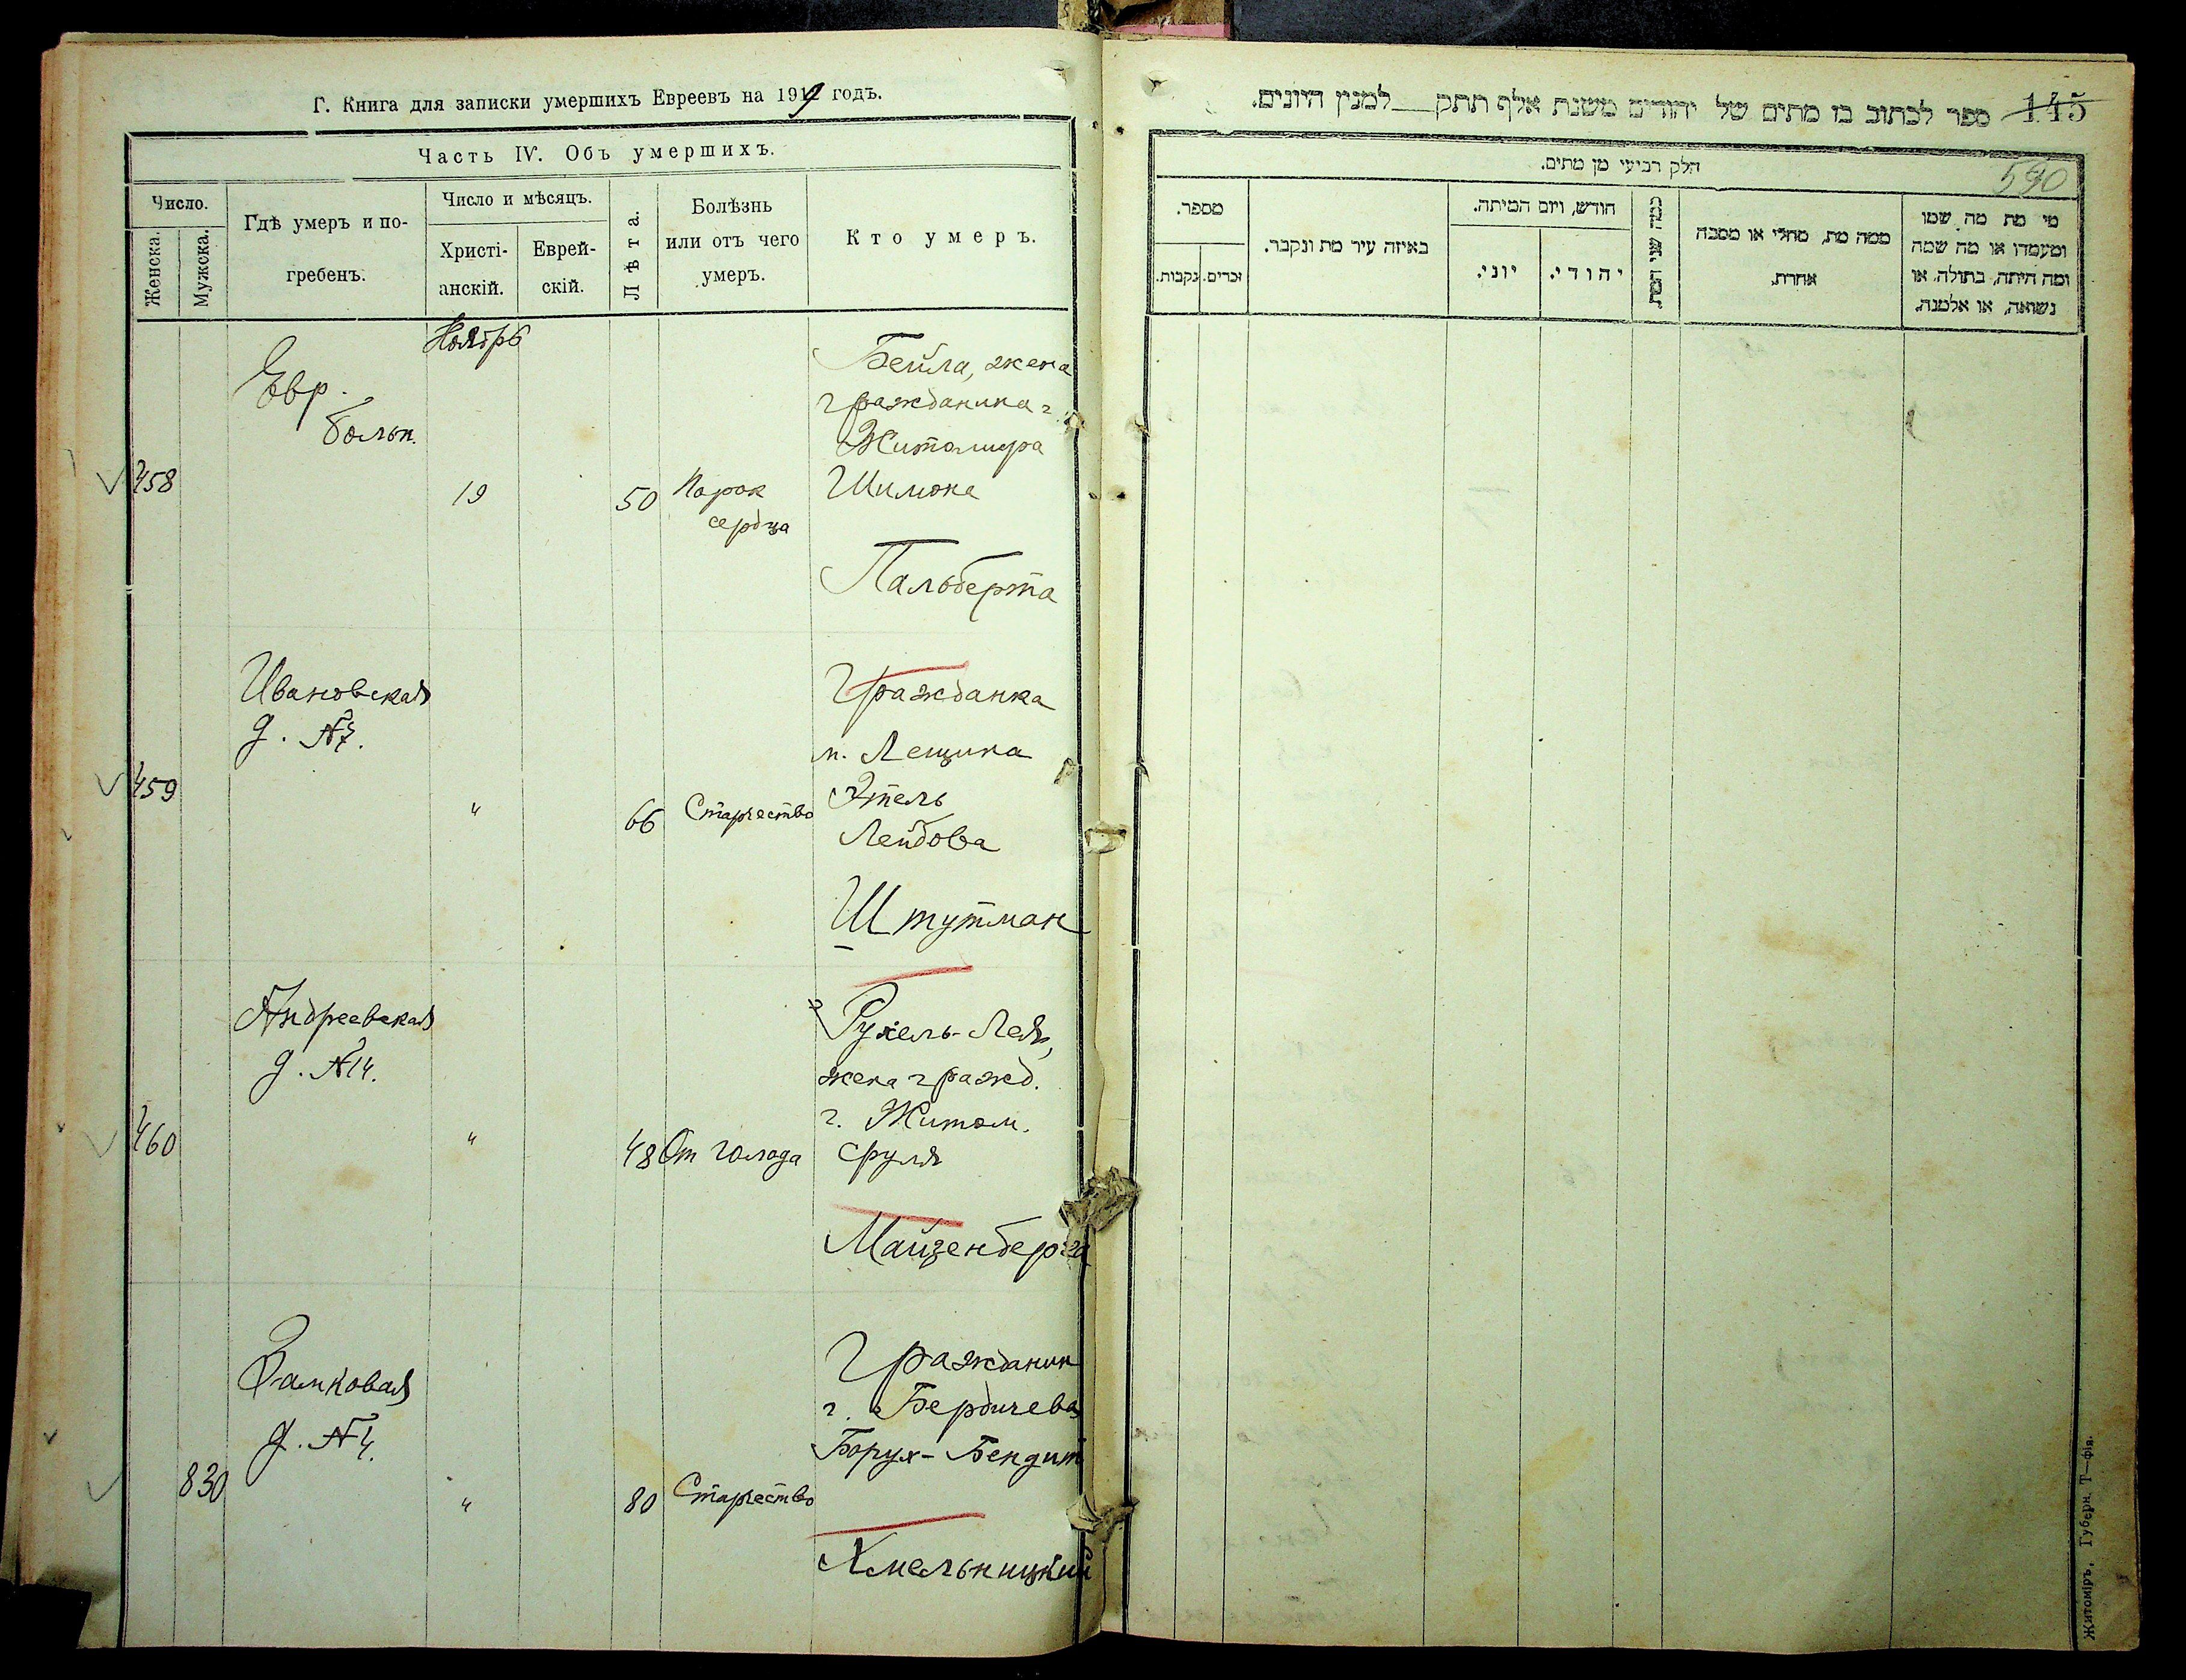 Г. Книга для записки умершихъ Евреевъ на 1919 годъ.
Часть IV. Объ умершихъ.
Число.
Женска.
Мужска.
Гдѣ умеръ и по-
гребенъ.
Число и мѣсяцъ.
Христі-
анскій.
Еврей-
скій.
Лѣта.
Болѣзнь
или отъ чего
умеръ.
Кто умеръ.
Ноябрь
458
Евр.
больн.
19
50
Порок
сердца
Бейла, жена
гражданина г.
Житомира
Шимона
Пальберта
459
Ивановская
д. №7.
"
66
Старчество
Гражданка
м. Лещина
Этель
Лейбова
Штутман
460
Андреевская
д. №14.
"
48
От голода
Рухель-Лея,
жена гражд.
г. Житом.
Сруля
Майзенберга
830
Замковая
д. №4.
"
80
Старчество
Гражданин
г. Бердичева
Борух-Бендит
Хмельницкий
145
ספר לכתוב בו מתים של יהודים משנת אלף תתק למנין היונים.
590
חלק רביעי מן מתים.
מספר.
זכרים.
נקבות.
באיזה עיר מת ונקבר.
חודש, ויום המיתה.
יוני.
יהודי.
כמה שני המת.
ממה מת, מחלי או מסבה
אחרת.
מי מת מה שמו
ומעמדו או מה שמה
ומה היתה, בתולה, או
נשואה, או אלמנה.
Житоміръ, Губерн. Т—фія.